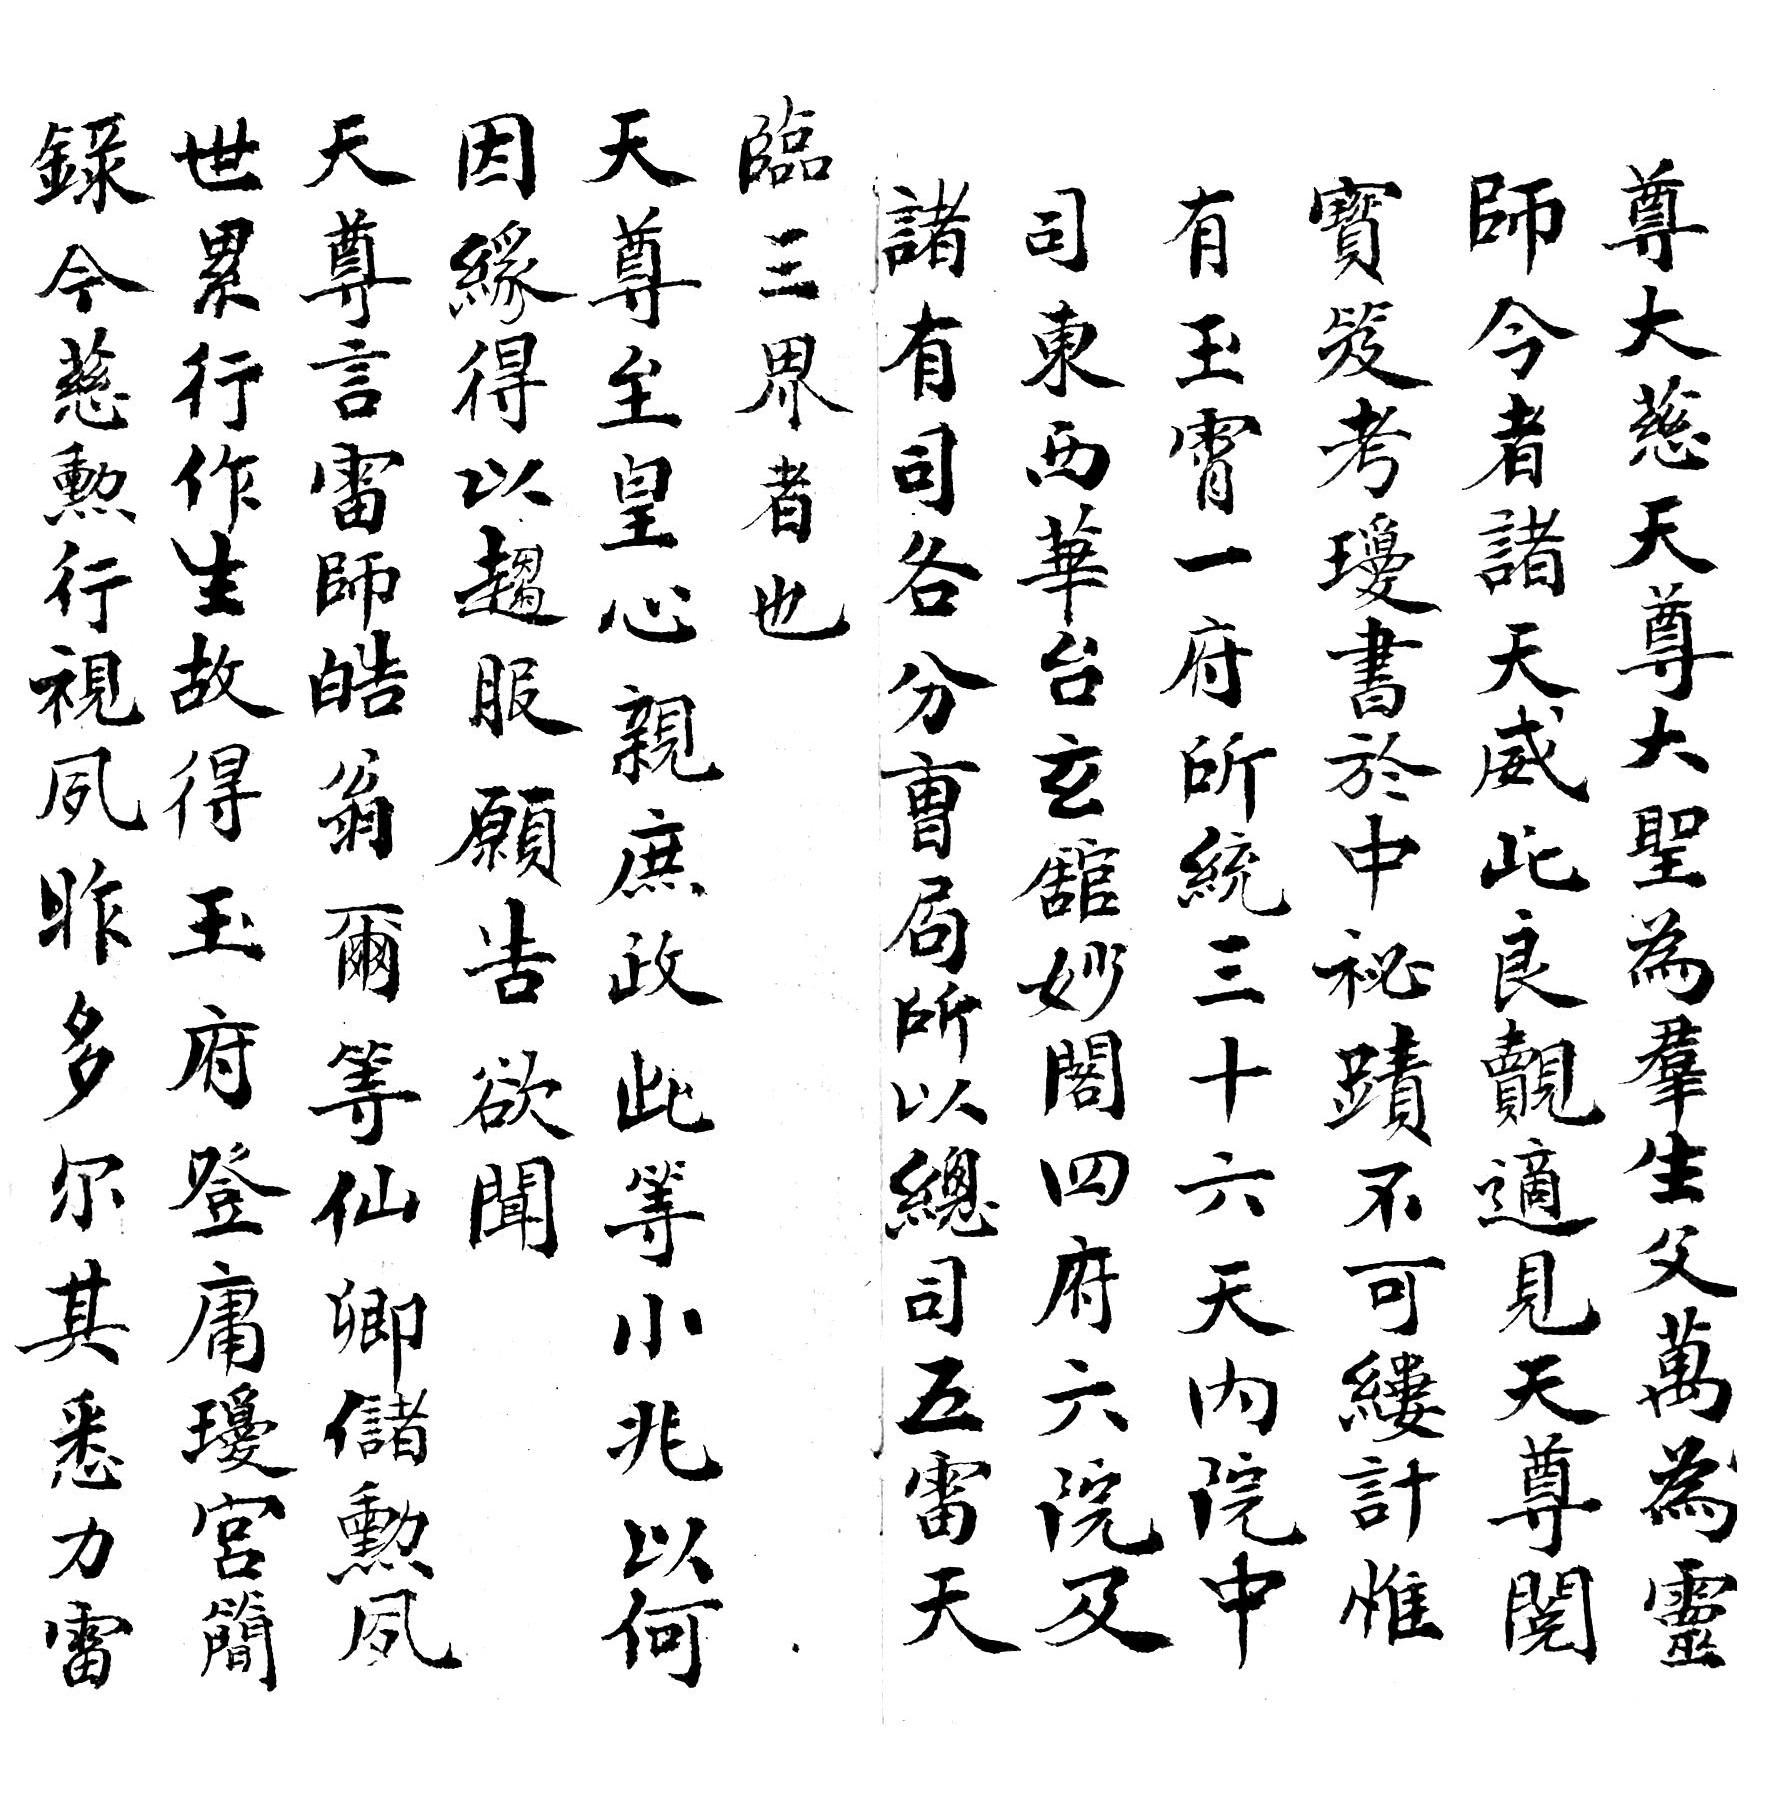 尊大慈天尊大聖為羣生父萬為靈
師今者諸天咸此良覿適見天尊閱
寶笈考瓊書於中祕蹟不可縷計惟
有玉霄一府所統三十六天內院中
司東西華台玄舘妙閣四府六院及
諸有司各分曹局所以總司五雷天
臨三界者也
天尊至皇心親庶政此等小兆以何
因緣得以趨服願告欲聞
天尊言雷師皓翁爾等仙卿儲勲夙
世累行作生故得玉府登庸瓊宮簡
錄今慈勲行視夙昨多尔其悉力雷